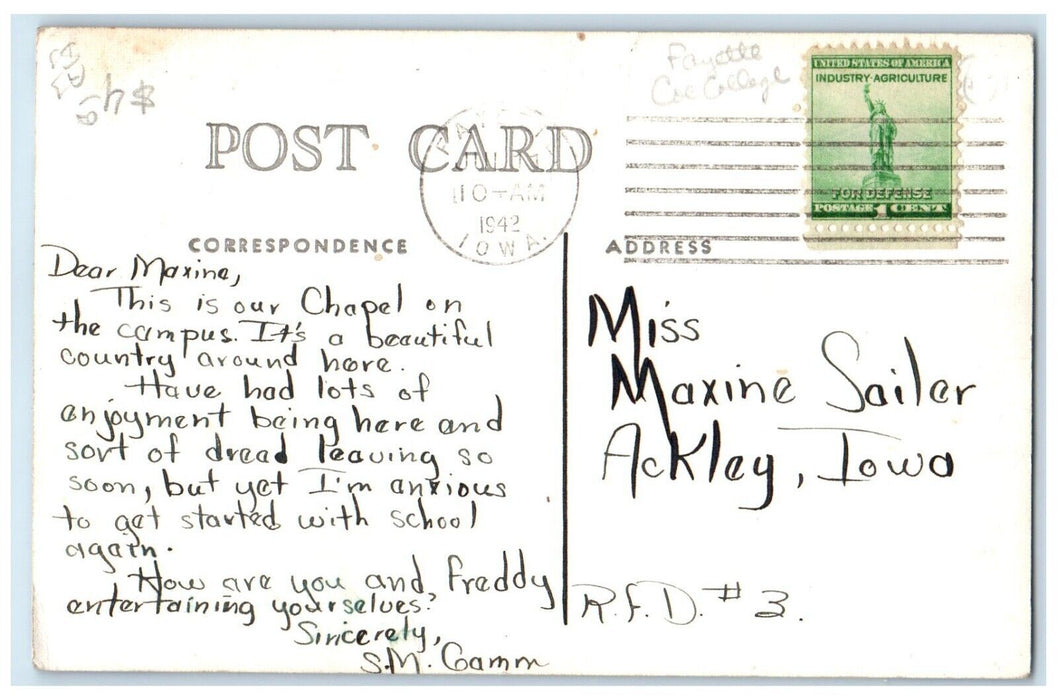 $4
Fayette
Coe College
UNITED STATES OF AMERICA
INDUSTRY-AGRICULTURE
FOR DEFENSE
POSTAGE 1 CENT
POST CARD
10-AM
1942
IOWA
CORRESPONDENCE
Dear Maxine,
This is our Chapel on
the campus. It's a beautiful
country around here.
Have had lots of
enjoyment being here and
sort of dread leaving so
soon, but yet I'm anxious
to get started with school
again.
How are you and Freddy
entertaining yourselves?
Sincerely,
S.M. Gamm
ADDRESS
Miss
Maxine Sailer
Ackley, Iowa
R.F.D. #3.